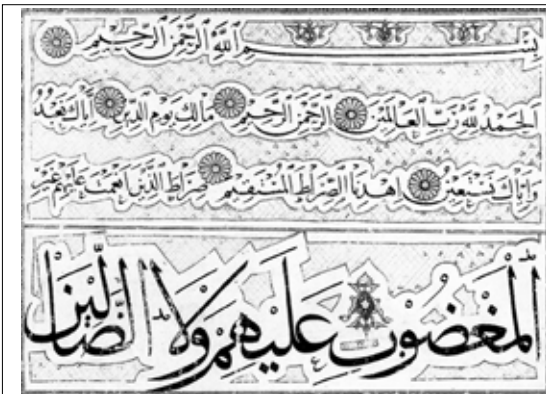 بسم الله الرحمن الرحيم
الحمد لله رب العالمين الرحمن الرحيم مالك يوم الدين إياك نعبد
وإياك نستعين اهدنا الصراط المستقيم صراط الذين أنعمت عليهم غير
المغضوب عليهم ولا الضالين